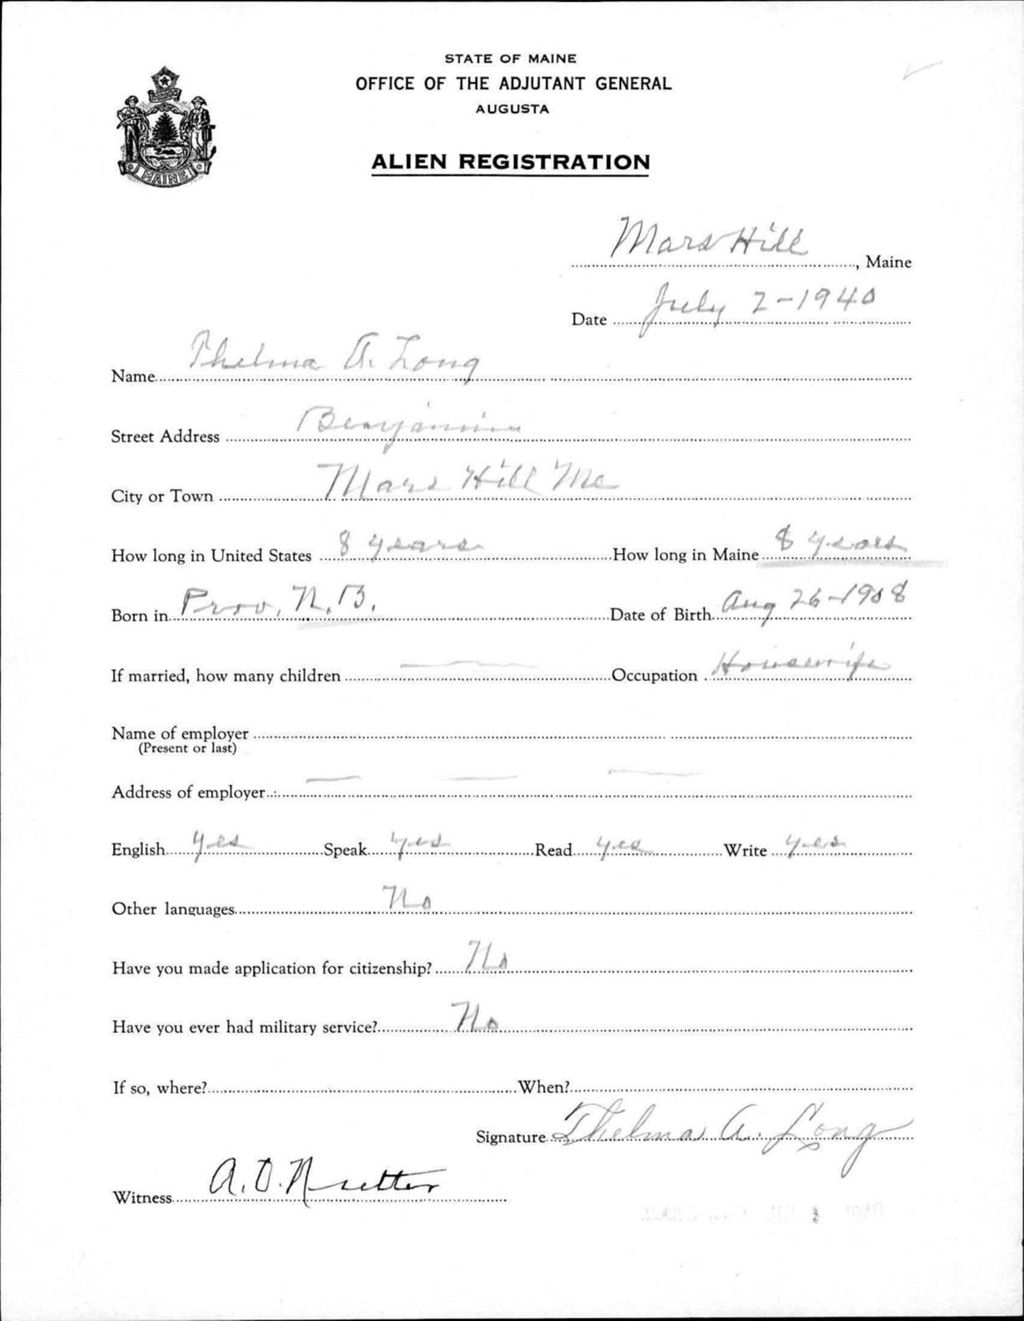 STATE OF MAINE
OFFICE OF THE ADJUTANT GENERAL
AUGUSTA
ALIEN REGISTRATION
MAINE
Mars Hill, Maine
Date July 2-1940
Name Thelma A. Long
Street Address Benjamin
City or Town Mars Hill Me
How long in United States 8 years How long in Maine 8 years
Born in Prov, N.B. Date of Birth Aug 26-1908
If married, how many children Occupation Housewife
Name of employer
(Present or last)
Address of employer
English yes Speak yes Read yes Write yes
Other languages No
Have you made application for citizenship? No
Have you ever had military service? No
If so, where? When?
Signature Thelma A. Long
Witness A.D.